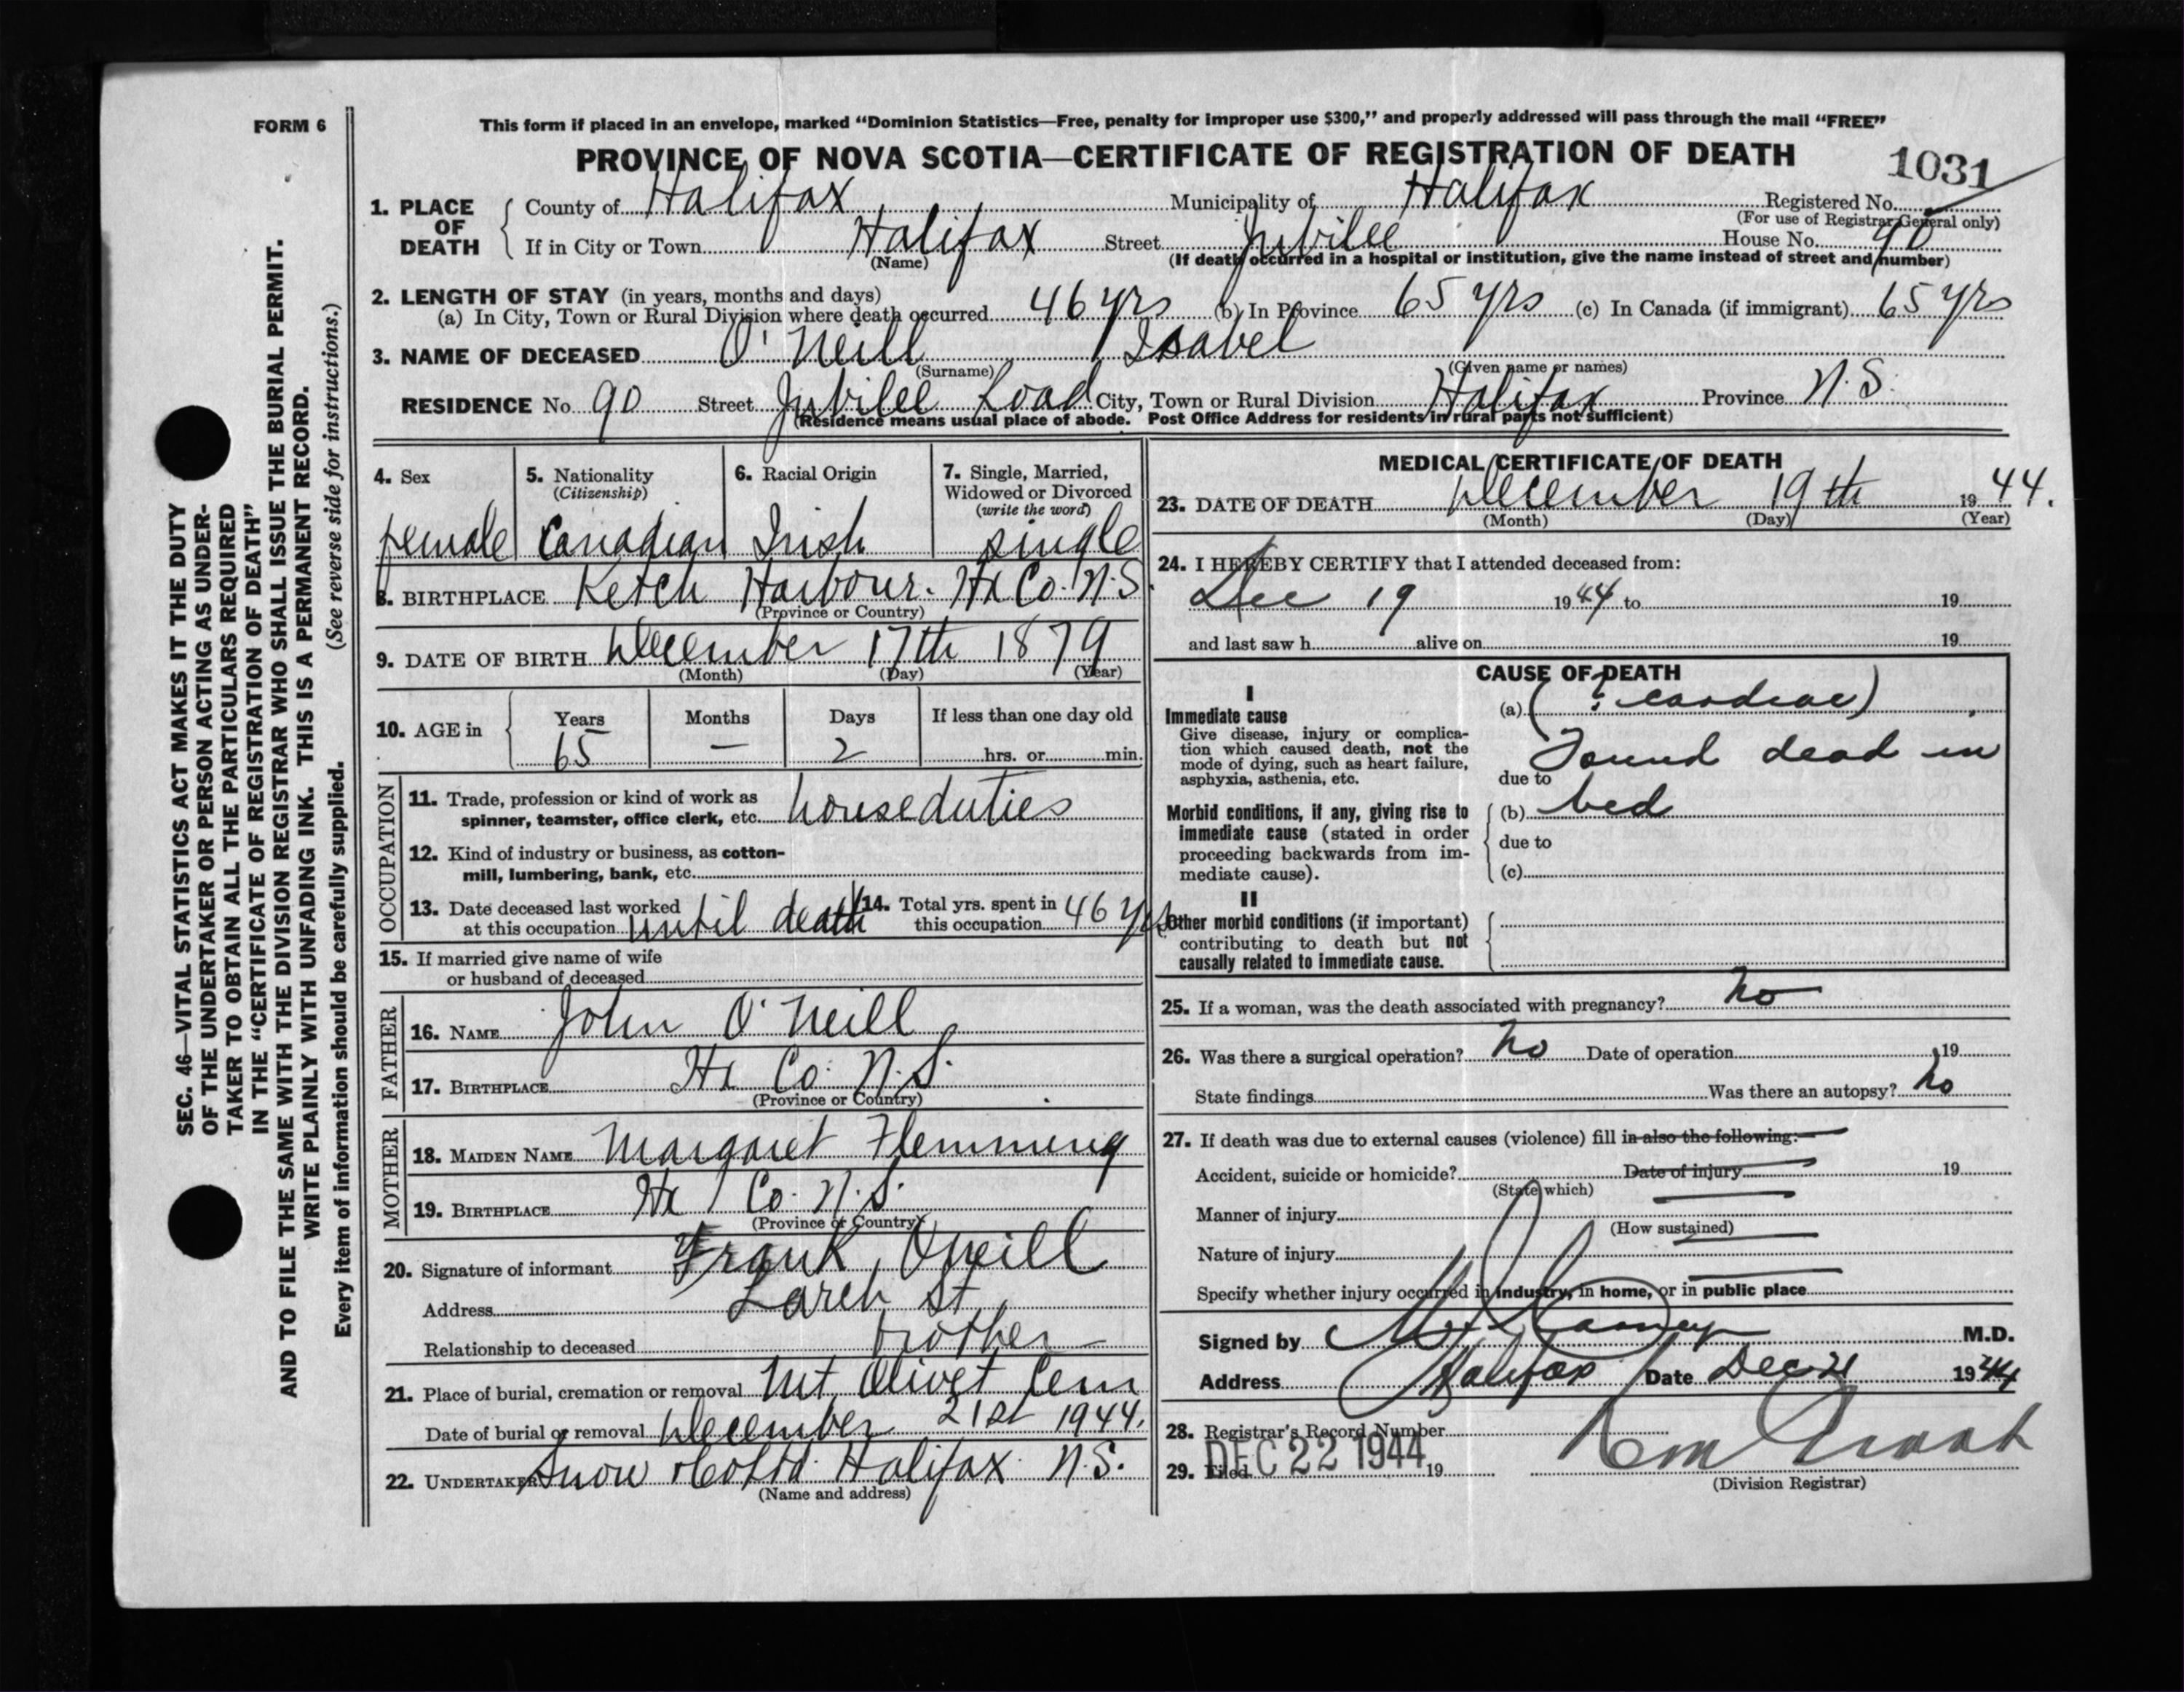 FORM 6
This form if placed in an envelope, marked “Dominion Statistics—Free, penalty for improper use $300,” and properly addressed will pass through the mail “FREE”
PROVINCE OF NOVA SCOTIA—CERTIFICATE OF REGISTRATION OF DEATH
1031
1. PLACE OF DEATH
County of Halifax Municipality of Halifax Registered No.
(For use of Registrar General only)
If in City or Town Halifax Street Jubilee House No. 90
(Name) (If death occurred in a hospital or institution, give the name instead of street and number)
2. LENGTH OF STAY (in years, months and days)
(a) In City, Town or Rural Division where death occurred 46 yrs (b) In Province 65 yrs (c) In Canada (if immigrant) 65 yrs
3. NAME OF DECEASED O'Neill, Isabel
(Surname) (Given name or names)
RESIDENCE No 90 Street Jubilee Road City, Town or Rural Division Halifax Province N.S.
(Residence means usual place of abode. Post Office Address for residents in rural parts not sufficient)
4. Sex
female
5. Nationality
(Citizenship)
Canadian
6. Racial Origin
Irish
7. Single, Married,
Widowed or Divorced
(write the word)
single
8. BIRTHPLACE Ketch Harbour. Hx Co. N.S.
(Province or Country)
9. DATE OF BIRTH December 17th 1879
(Month) (Day) (Year)
10. AGE in
Years Months Days If less than one day old
65 — 2 hrs. or min.
OCCUPATION
11. Trade, profession or kind of work as
spinner, teamster, office clerk, etc. houseduties
12. Kind of industry or business, as cotton-
mill, lumbering, bank, etc.
13. Date deceased last worked
at this occupation until death
14. Total yrs. spent in
this occupation 46 yrs
15. If married give name of wife
or husband of deceased
FATHER
16. NAME John O'Neill
17. BIRTHPLACE Hx Co. N.S.
(Province or Country)
MOTHER
18. MAIDEN NAME Margaret Flemming
19. BIRTHPLACE Hx Co. N.S.
(Province or Country)
20. Signature of informant Frank O'Neill
Address Larch St.
Relationship to deceased brother
21. Place of burial, cremation or removal Mt. Olivet Cem
Date of burial or removal December 21st 1944.
22. UNDERTAKER Snow & Co Ltd. Halifax N.S.
(Name and address)
MEDICAL CERTIFICATE OF DEATH
23. DATE OF DEATH December 19th 1944.
(Month) (Day) (Year)
24. I HEREBY CERTIFY that I attended deceased from:
Dec 19 1944 to 19
and last saw h alive on 19
CAUSE OF DEATH
I
Immediate cause
Give disease, injury or complica-
tion which caused death, not the
mode of dying, such as heart failure,
asphyxia, asthenia, etc.
(a) (? cardiac)
Found dead in
due to
Morbid conditions, if any, giving rise to
immediate cause (stated in order
proceeding backwards from im-
mediate cause).
(b) bed
due to
(c)
II
Other morbid conditions (if important)
contributing to death but not
causally related to immediate cause.
25. If a woman, was the death associated with pregnancy? No
26. Was there a surgical operation? No Date of operation 19
State findings Was there an autopsy? No
27. If death was due to external causes (violence) fill in also the following:
Accident, suicide or homicide? Date of injury 19
(State which)
Manner of injury
(How sustained)
Nature of injury
Specify whether injury occurred in industry, in home, or in public place
Signed by M.D.
Address Halifax Date Dec 21 1944
28. Registrar's Record Number
29. Filed DEC 22 1944 19
(Division Registrar)
SEC. 46—VITAL STATISTICS ACT MAKES IT THE DUTY
OF THE UNDERTAKER OR PERSON ACTING AS UNDER-
TAKER TO OBTAIN ALL THE PARTICULARS REQUIRED
IN THE “CERTIFICATE OF REGISTRATION OF DEATH”
AND TO FILE THE SAME WITH THE DIVISION REGISTRAR WHO SHALL ISSUE THE BURIAL PERMIT.
WRITE PLAINLY WITH UNFADING INK. THIS IS A PERMANENT RECORD.
Every item of information should be carefully supplied. (See reverse side for instructions.)